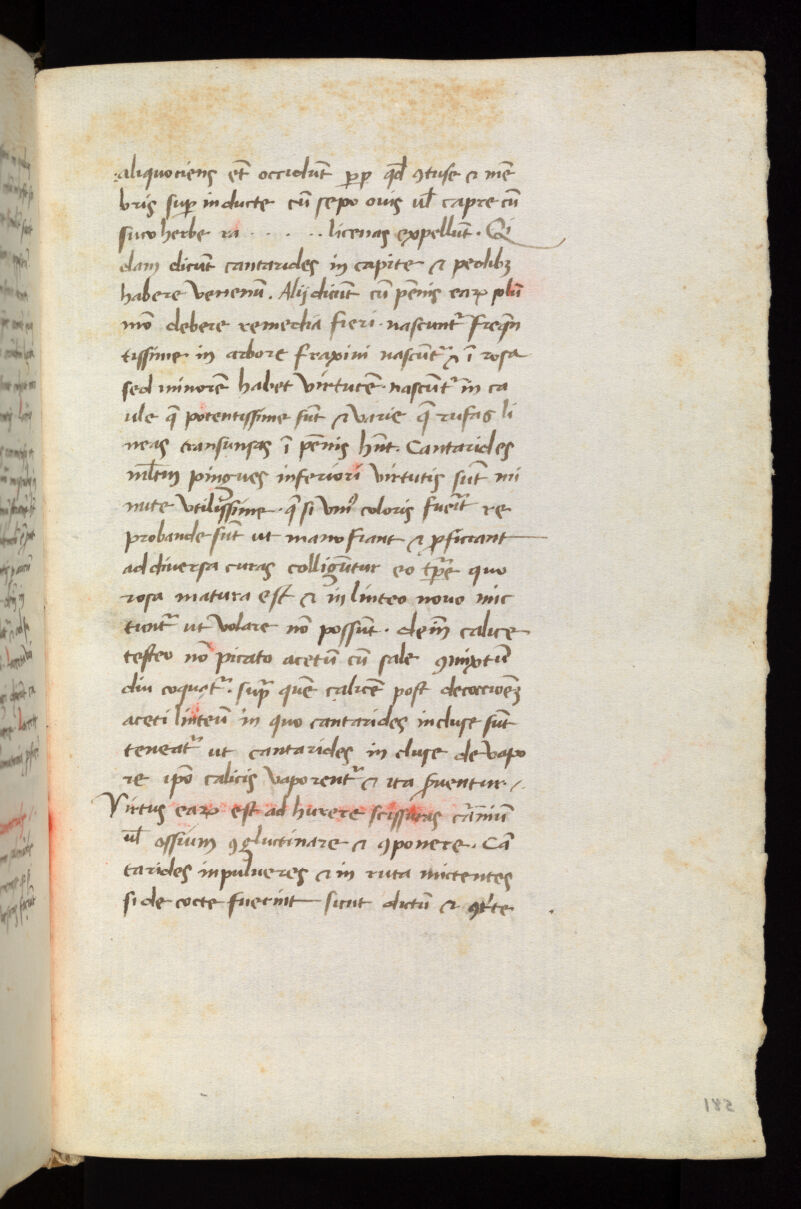 aliquociens et̄ occidūt ꝑp qd̄ ꝯtuse ⁊ mē
bris sup inducte cū sepo ouis ul̄ capre cū
suco herbe ra . . . . . . licenas expellūt. Qi
dam dicūt cantarides in capite ⁊ pedibꝫ
habere venenū. Alij dicūt cū pēnis eaꝝ
mō debere remedia fieri. nascunt᷑ freq̄n
tissime in arbore fraxini nascūt᷑ ⁊ ī rosa
sed minorē habet virtutē. nascūt᷑ in ca
ule q̄ potentissime sūt ⁊ varie q̄ rufas li
neas transuersas ī pēnis hn̄t. Cantarides
ml̄tm pingues inferiori virtutis sūt mi
nute utilissime. q̄ si vniꝰ coloris fuerīt re
probande sūt ut mano fiant ⁊ ꝓficiant
ad diuersa curas colligūtur eo tp̄re quo
rosa matura est ⁊ in linteo nouo mic
tunt᷑ ut volare nō possūt. dem̄ calice
testeo nō picato acetū cū sale ꝯmixtū
diu coquat᷑. supª quē calicē post decoccioēꝫ
aceti linteū in quo cantarides incluse sūt
teneat᷑ ut cantarides in cluse de vapo
re ip̄o calicis vaporent᷑ ⁊ ita ꝑuentur.
Virtus eaꝝ est ad hurere scissuras crāniū
ul̄ ossium ꝯgluctinare ⁊ ꝯponere. Cā
tarides in pulueres ⁊ in ruta mictentes
si de cocte fuerint sicut dictū ⁊
185